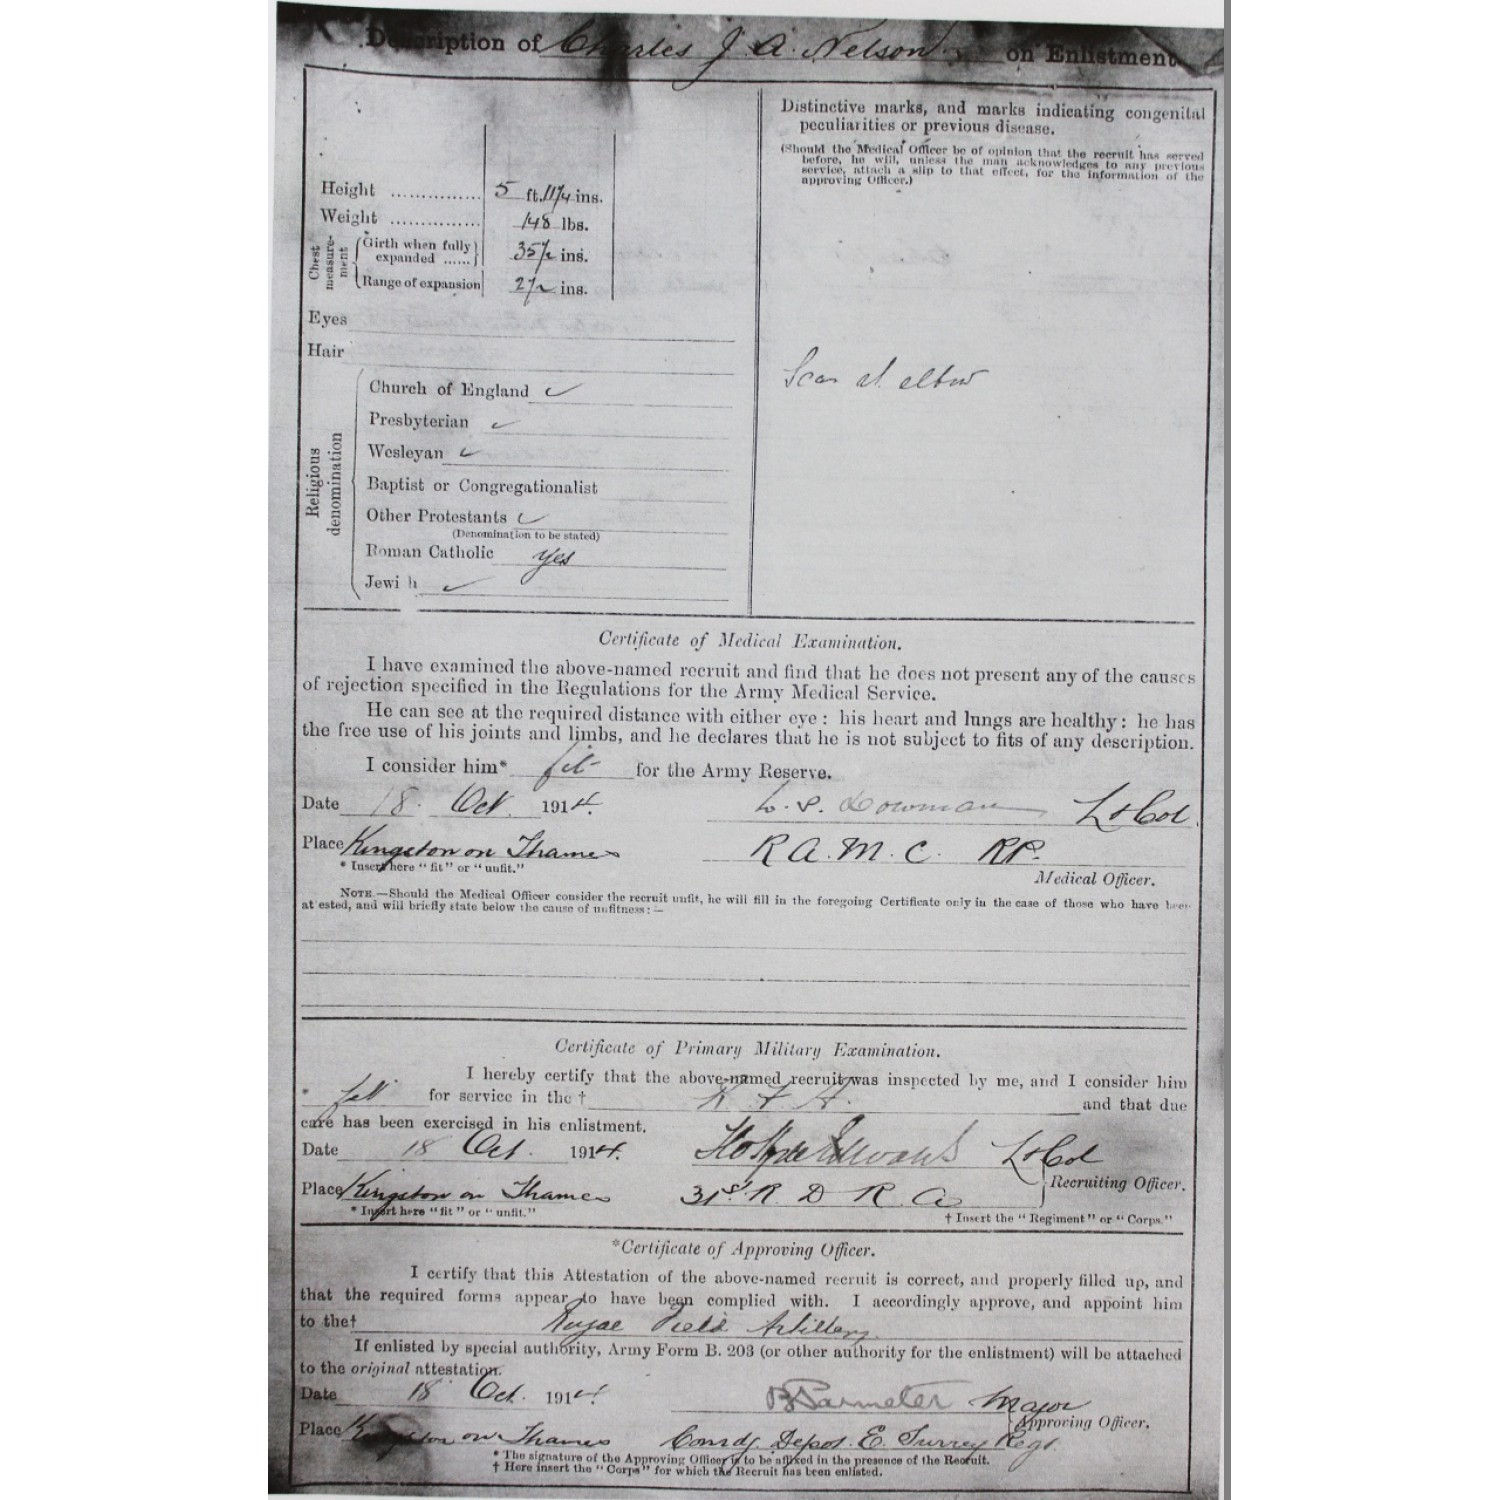 Description of Charles J. A. Nelson on Enlistment
Distinctive marks, and marks indicating congenital
peculiarities or previous disease.
(Should the Medical Officer be of opinion that the recruit has served
before, he will, unless the man acknowledges to any previous
service, attach a slip to that effect, for the information of the
approving Officer.)
Height .............. 5 ft. 11 1/4 ins.
Weight .............. 148 lbs.
Chest measure-ment
Girth when fully
expanded ...... 35 1/2 ins.
Range of expansion 2 1/2 ins.
Eyes
Hair
Scar at elbow
Religious denomination
Church of England ✓
Presbyterian ✓
Wesleyan ✓
Baptist or Congregationalist
Other Protestants ✓
(Denomination to be stated)
Roman Catholic yes
Jewi h ✓
Certificate of Medical Examination.
I have examined the above-named recruit and find that he does not present any of the causes
of rejection specified in the Regulations for the Army Medical Service.
He can see at the required distance with either eye: his heart and lungs are healthy: he has
the free use of his joints and limbs, and he declares that he is not subject to fits of any description.
I consider him* fit for the Army Reserve.
Date 18. Oct. 1914. Lt Col.
Place Kingston on Thames R.A.M.C. RP.
* Insert here "fit" or "unfit."
Medical Officer.
NOTE.—Should the Medical Officer consider the recruit unfit, he will fill in the foregoing Certificate only in the case of those who have been
at ested, and will briefly state below the cause of unfitness:—
Certificate of Primary Military Examination.
I hereby certify that the above-named recruit was inspected by me, and I consider him
* fit for service in the † R F A. and that due
care has been exercised in his enlistment.
Date 18 Oct. 1914. Lt Col
Recruiting Officer.
Place Kingston on Thames 31st R D R A
* Insert here "fit" or "unfit."
† Insert the "Regiment" or "Corps."
*Certificate of Approving Officer.
I certify that this Attestation of the above-named recruit is correct, and properly filled up, and
that the required forms appear to have been complied with. I accordingly approve, and appoint him
to the† Royal Field Artillery.
If enlisted by special authority, Army Form B. 203 (or other authority for the enlistment) will be attached
to the original attestation.
Date 18 Oct. 1914. Parmeter Major
Approving Officer.
Place Kingston on Thames Comdg. Depot. E. Surrey Regt.
* The signature of the Approving Officer is to be affixed in the presence of the Recruit.
† Here insert the "Corps" for which the Recruit has been enlisted.